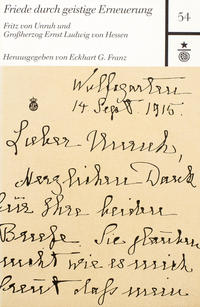 Friede durch geistige Erneuerung
Fritz von Unruh und
Großherzog Ernst Ludwig von Hessen
54
Herausgegeben von Eckhart G. Franz
Wolfsgarten
14 Sept 1915
Lieber Unruh,
Herzlichen Dank
für Ihre beiden
Briefe. Sie glauben
nicht wie es mich
freut dass mein